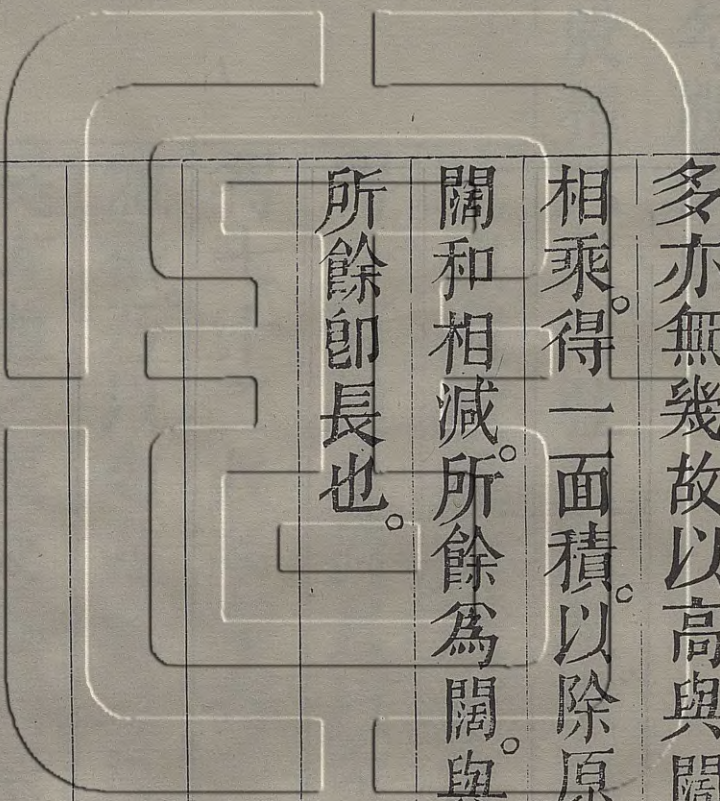 多亦無幾故以高與闊
相乘。得一面積。以除原
闊和相減。所餘爲闊。與
所餘卽長也。